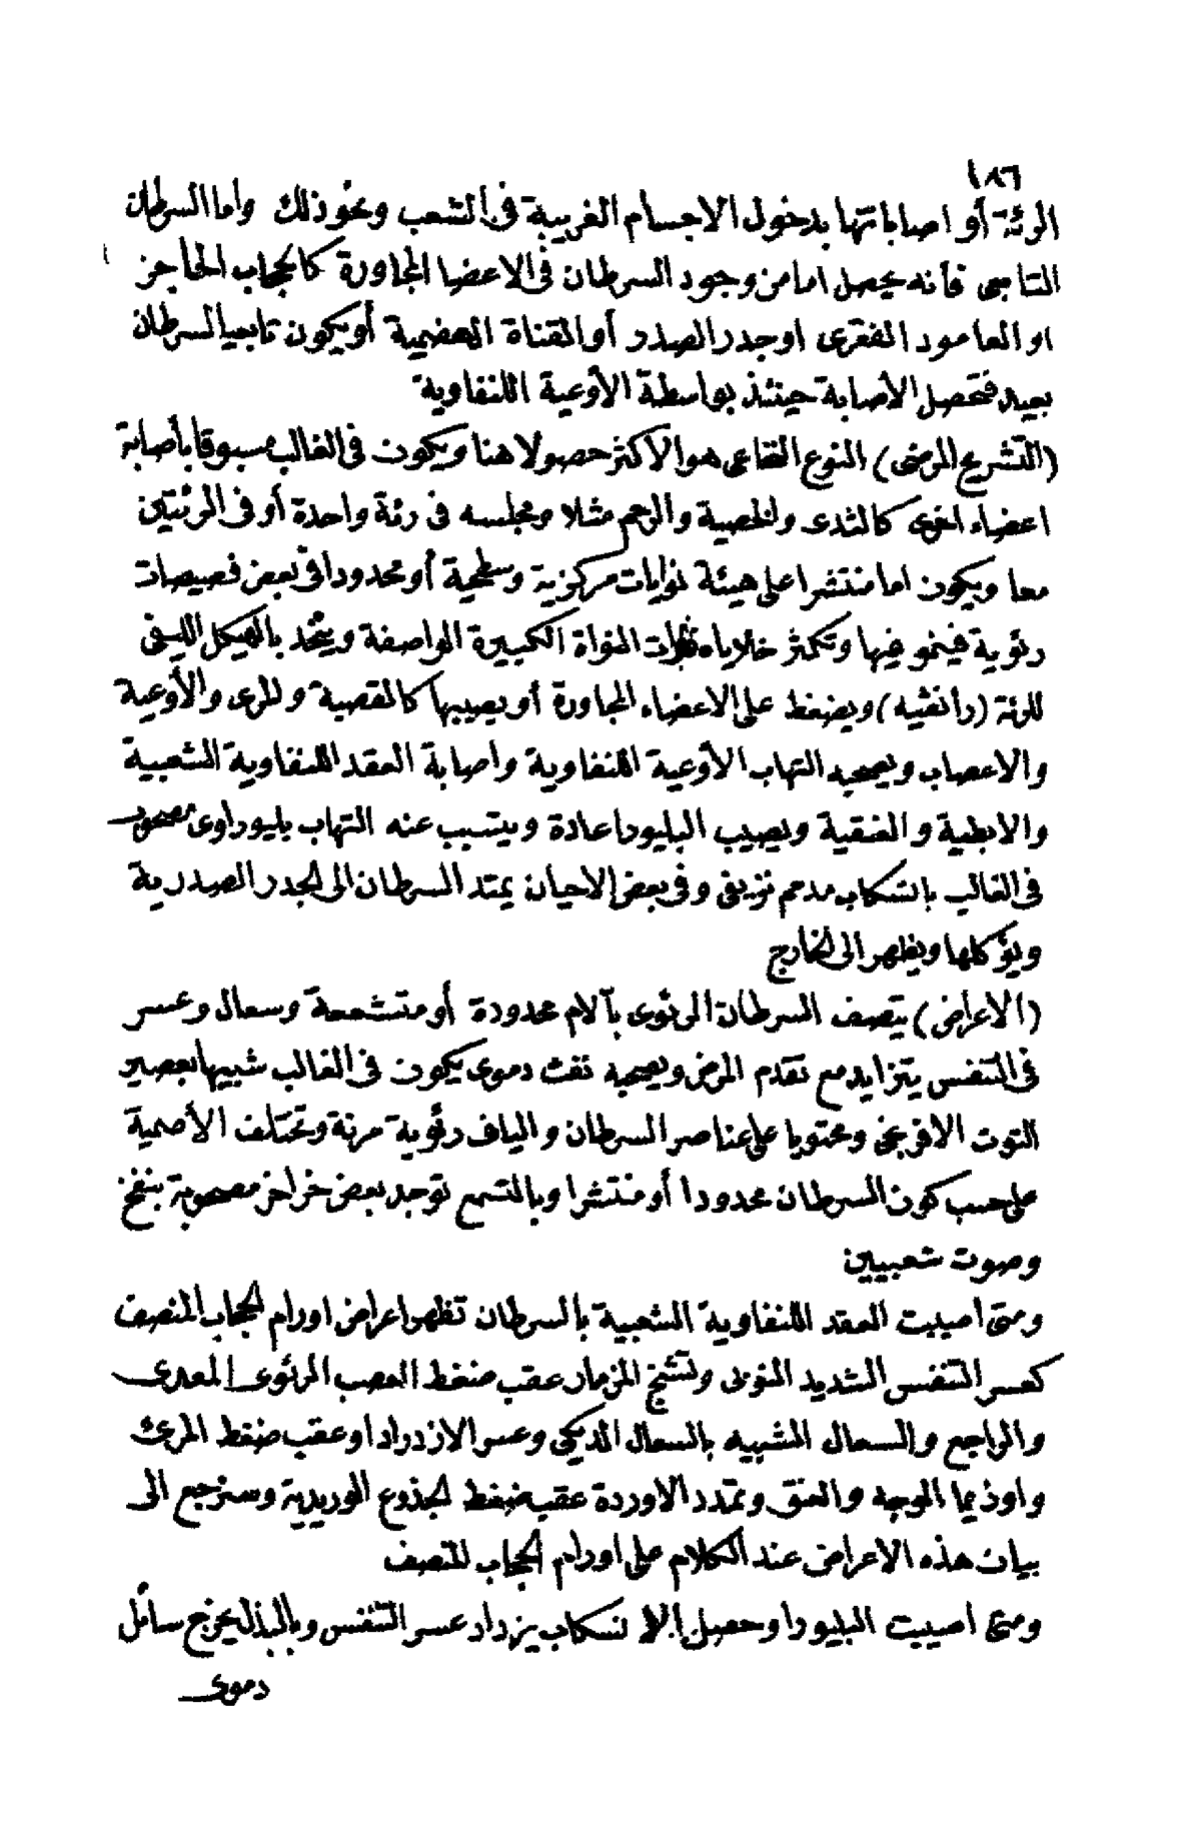 ١٨٦
الرئة أو اصاباتها بدخول الاجسام الغريبة فى الشعب ونحو ذلك واما السرطان
التابعى فأنه يحصل اما من وجود السرطان فى الاعضا المجاورة كالحجاب الحاجز
او العامود الفقرى او جدر الصدر أو القناة الهضمية أو يكون تابعيا لسرطان
بعيد فتحصل الأصابة حينئذ بواسطة الأوعية اللنفاوية
(التشريح المرضى) النوع النخاعى هو الاكثر حصولا هنا ويكون فى الغالب مسبوقا بأصابة
اعضاء اخرى كالثدى والخصية والرحم مثلا ومجلسه فى رئة واحدة أو فى الرئتين
معا ويكون اما منتشرا على هيئة نوايات مركزية وسطحية أو محدودا فى بعض فصيصات
رئوية فينمو فيها وتكثر خلاياه ذات النواة الكبيرة الواصفة ويتحد بالهيكل الليفى
للرئة (رانفيه) ويضغط على الاعضاء المجاورة أو يصيبها كالقصبة والمرى والأوعية
والاعصاب ويصحبه التهاب الأوعية اللنفاوية واصابة العقد اللنفاوية الشعبية
والابطية والعنقية ويصيب البليورا عادة ويتسبب عنه التهاب بليوراوى مصحوب
فى الغالب بانسكاب مدمم نزيفى وفى بعض الاحيان يمتد السرطان الى الجدر الصدرية
ويؤكلها ويظهر الى الخارج
(الاعراض) يتصف السرطان الرئوى بآلام محدودة أو متشععة وسعال وعسر
فى التنفس يتزايد مع تقدم المرض ويصحبه نفث دموى يكون فى الغالب شبيها بعصير
التوت الافرنجى ومحتويا على عناصر السرطان والياف رئوية مرنة وتختلف الأصمية
على حسب كون السرطان محدودا أو منتشرا وبالتسمع توجد بعض خراخر مصحوبة بنفخ
وصوت شعبيين
ومتى اصيبت العقد اللنفاوية الشعبية بالسرطان تظهر اعراض اورام الحجاب المنصف
كعسر التنفس الشديد النوبى وتشنج المزمار عقب ضغط العصب الرئوى المعدى
والراجع والسعال الشبيه بالسعال الديكى وعسر الازدراد او عقب ضغط المرئ
واوذيما الوجه والعنق وتمدد الاوردة عقب ضغط الجذوع الوريدية وسنرجع الى
بيان هذه الاعراض عند الكلام على اورام الحجاب المنصف
ومتى اصيبت البليورا وحصل الانسكاب يزداد عسر التنفس وبالبذل يخرج سائل
دموى